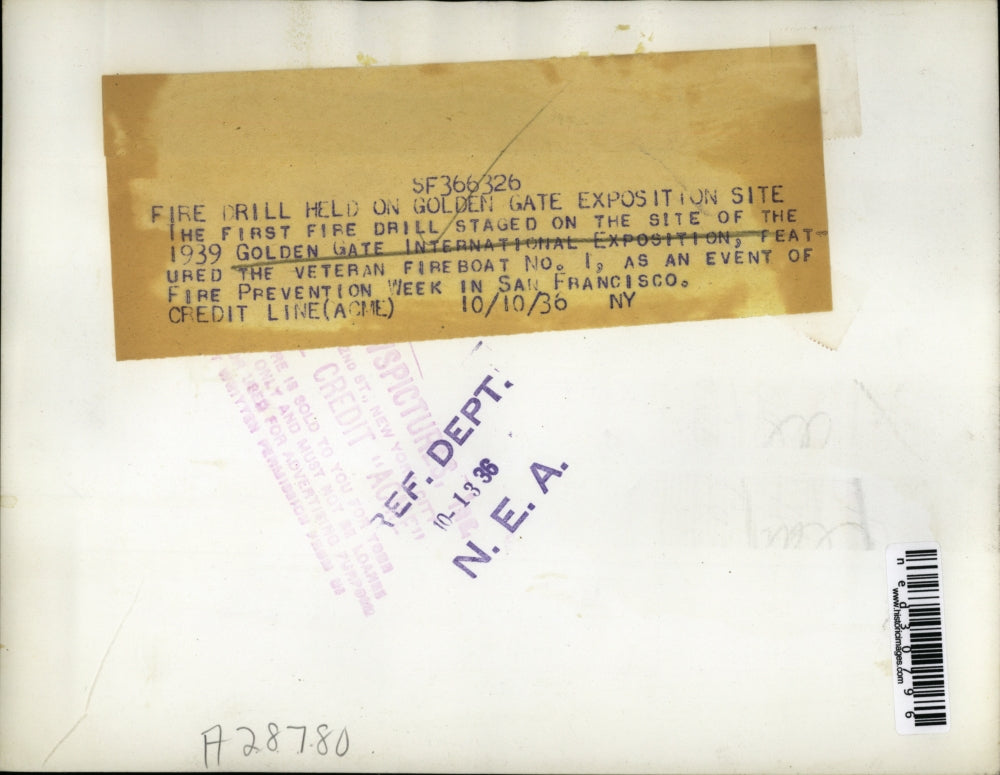 SF366326
FIRE DRILL HELD ON GOLDEN GATE EXPOSITION SITE
THE FIRST FIRE DRILL STAGED ON THE SITE OF THE
1939 GOLDEN GATE INTERNATIONAL EXPOSITION, FEAT-
URED THE VETERAN FIREBOAT NO. 1, AS AN EVENT OF
FIRE PREVENTION WEEK IN SAN FRANCISCO.
CREDIT LINE(ACME) 10/10/36 NY
2ND ST., NEW YORK CITY
CREDIT "ACME"
IS SOLD TO YOU FOR YOUR
ONLY AND MUST NOT BE LOANED
FOR ADVERTISING PURPOSES
WRITTEN PERMISSION
REF. DEPT.
10-13 36
N. E. A.
ned30796
www.historicimages.com
A28780